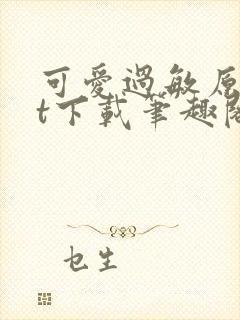 可愛過敏原
t下載筆趣閣
乜生